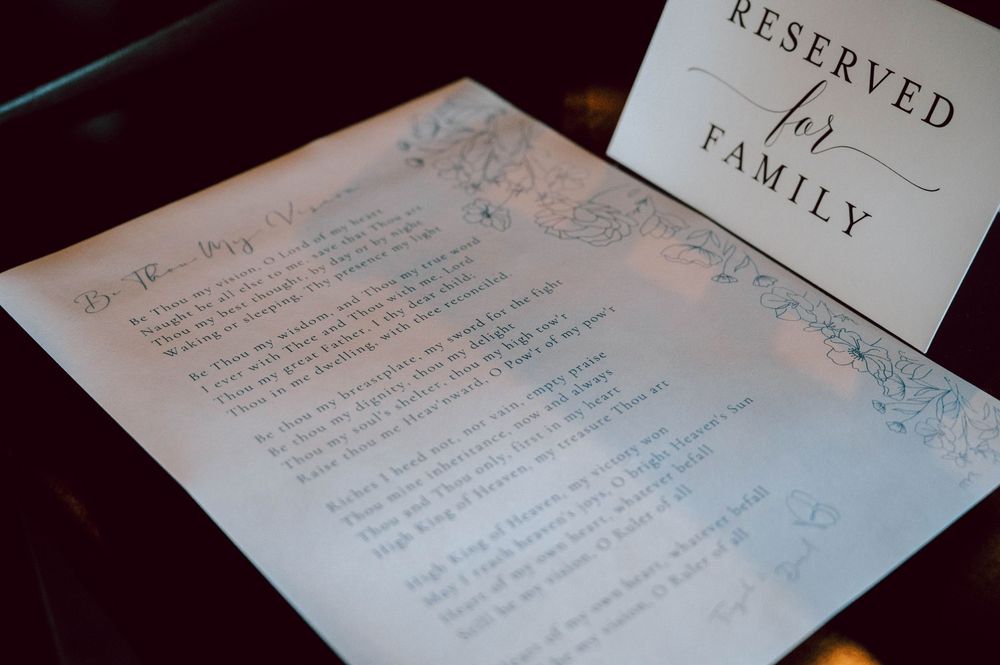 RESERVED
for
FAMILY
Be Thou My Vision
Be Thou my vision, O Lord of my heart
Naught be all else to me, save that Thou art
Thou my best thought, by day or by night
Waking or sleeping, Thy presence my light
Be Thou my wisdom, and Thou my true word
I ever with Thee and Thou with me, Lord
Thou my great Father, I thy dear child;
Thou in me dwelling, with thee reconciled.
Be thou my breastplate, my sword for the fight
Be thou my dignity, thou my delight
Thou my soul's shelter, thou my high tow'r
Raise thou me Heav'nward, O Pow'r of my pow'r
Riches I heed not, nor vain, empty praise
Thou mine inheritance, now and always
Thou and Thou only, first in my heart
High King of Heaven, my treasure Thou art
High King of Heaven, my victory won
May I reach heaven's joys, O bright Heaven's Sun
Heart of my own heart, whatever befall
Still be my vision, O Ruler of all
of my own heart, whatever befall
be my vision, O Ruler of all